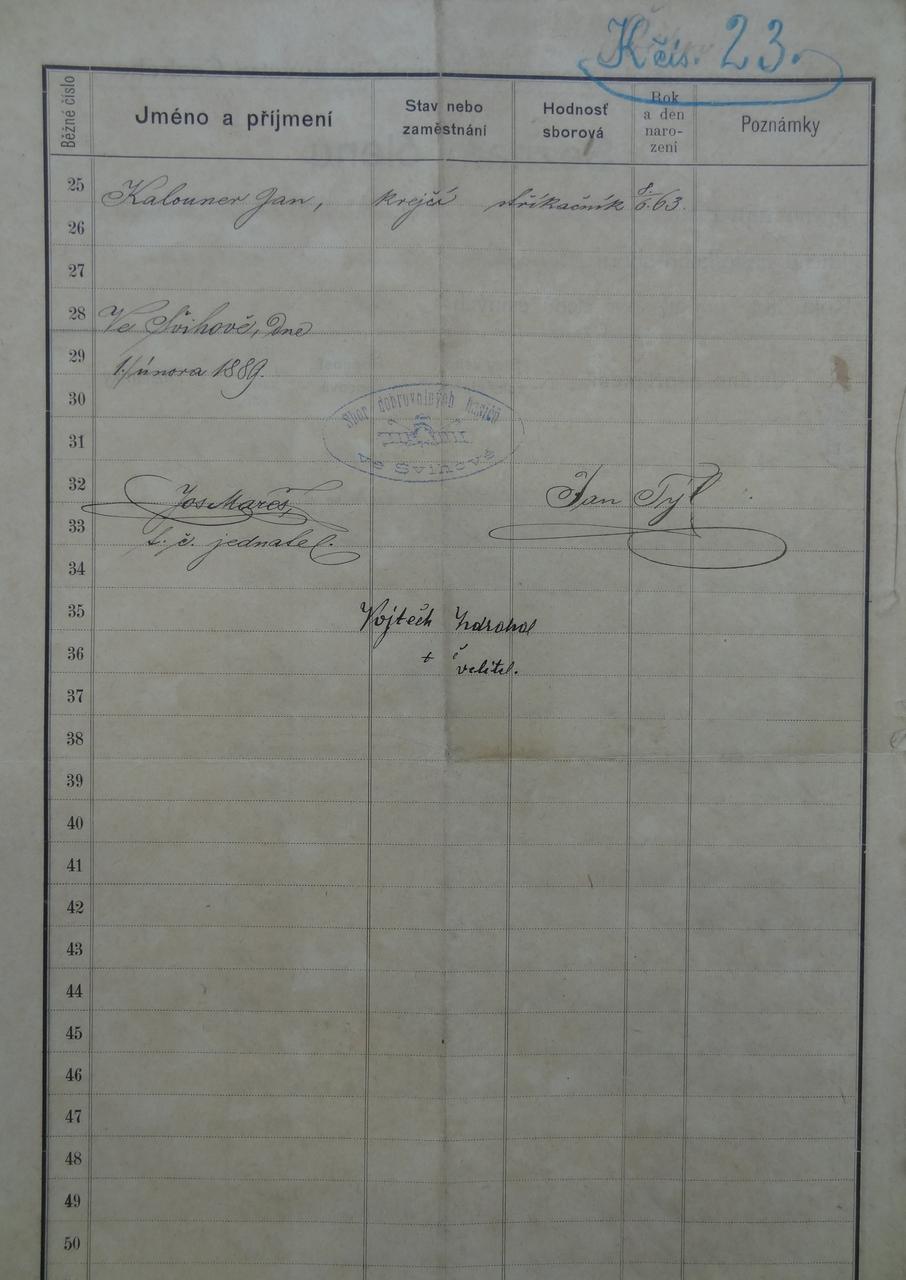 K čís. 23.
Běžné číslo
Jméno a příjmení
Stav nebo
zaměstnání
Hodnosť
sborová
Rok
a den
naro-
zení
Poznámky
25 Kalouner Jan, krejčí stříkačník 8./6. 63.
26
27
28 Ve Švihově, dne
29 1. února 1889.
30
Sbor dobrovolných hasičů
31
ve Švihově
32 Jos Mareš, Jan Týl
33 t. č. jednatel.
34
35 Vojtěch
36 t č velitel.
37
38
39
40
41
42
43
44
45
46
47
48
49
50